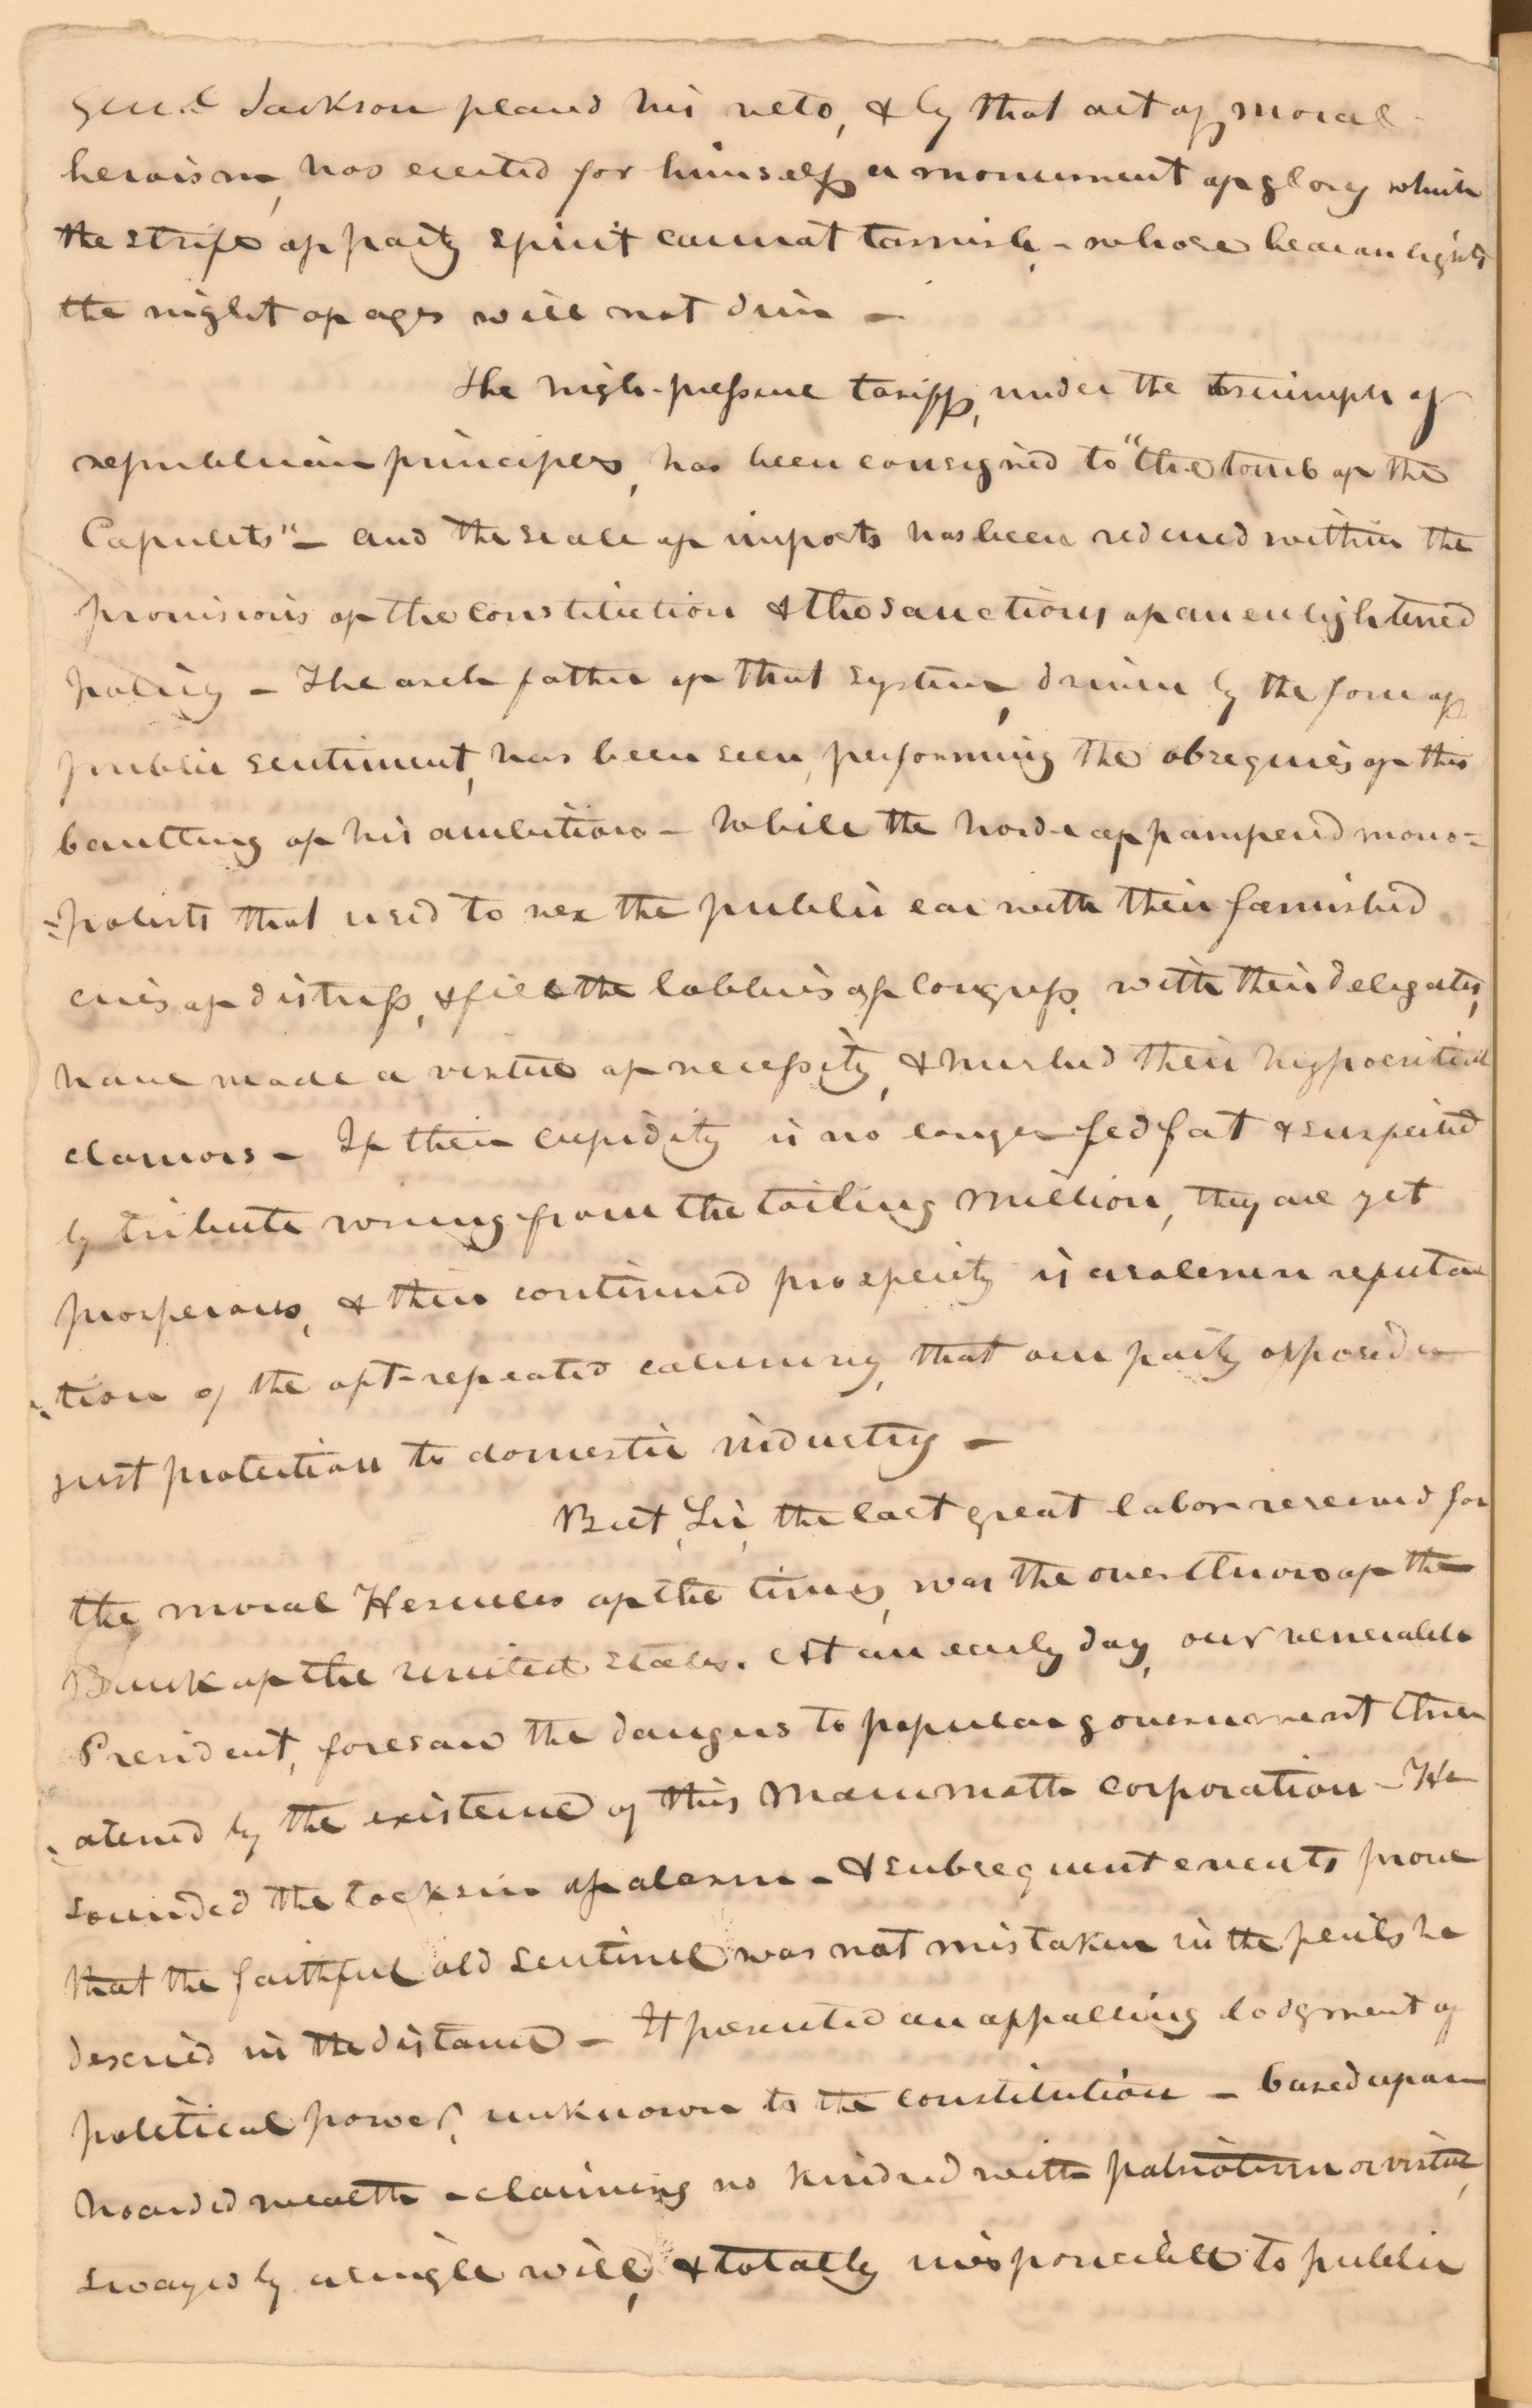 Genl Jackson placed his veto, & by that act of moral
heroism, has erected for himself a monument of glory which
the strife of party spirit cannot tarnish, - whose beacon lights
the night of ages will not dim -
The high-pressure tariff, under the triumph of
republican principles, has been consigned to "the tomb of the
Capulets" - and the scale of imposts has been reduced within the
provisions of the constitution & the sanctions of an enlightened
policy - The arch father of that system, driven by the force of
public sentiment, has been seen, performing the obsequies of this
bantling of his ambition - While the horde of pampered mono=
=polists that used to vex the public ear with their famished
cries of distress, & fill the lobbies of Congress with their delegates,
have made a virtue of necessity, & hushed their hypocritical
clamors - If their cupidity is no longer fed fat & surfeited
by tribute wrung from the toiling million, they are yet
prosperous, & their continued prosperity is a solemn refuta
=tion of the oft-repeated calumny, that our party opposed a
just protection to domestic industry -
But, Sir, the last great labor reserved for
the moral Hercules of the times, was the overthrow of the
Bank of the United States. At an early day, our venerable
President, foresaw the dangers to popular government thre
=atened by the existence of this Mammoth corporation - He
sounded the tocksin of alarm - & subsequent events prove
that the faithful old sentinel was not mistaken in the perils he
descried in the distance - It presented an appalling lodgment of
political power, unknown to the constitution - based upon
hoarded wealth - claiming no kindred with patriotism or virtue,
swayed by a single will, & totally irresponsible to public